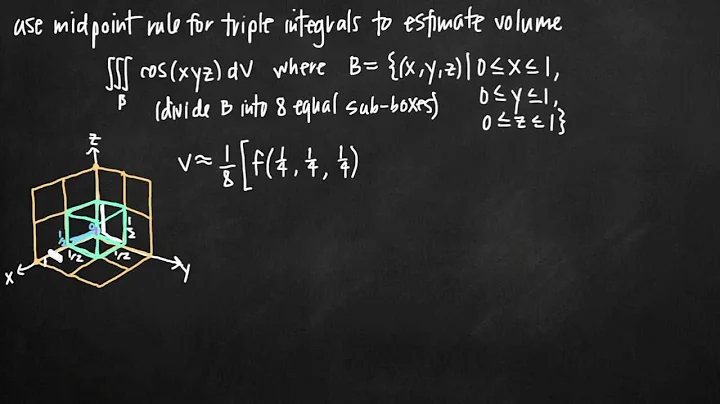 use midpoint rule for triple integrals to estimate volume
∭_B cos(xyz) dV where B = {(x,y,z) | 0 ≤ x ≤ 1,
(divide B into 8 equal sub-boxes) 0 ≤ y ≤ 1,
0 ≤ z ≤ 1}
V ≈ 1/8 [f(1/4, 1/4, 1/4)
z
1/2
1/2 1/2
x y